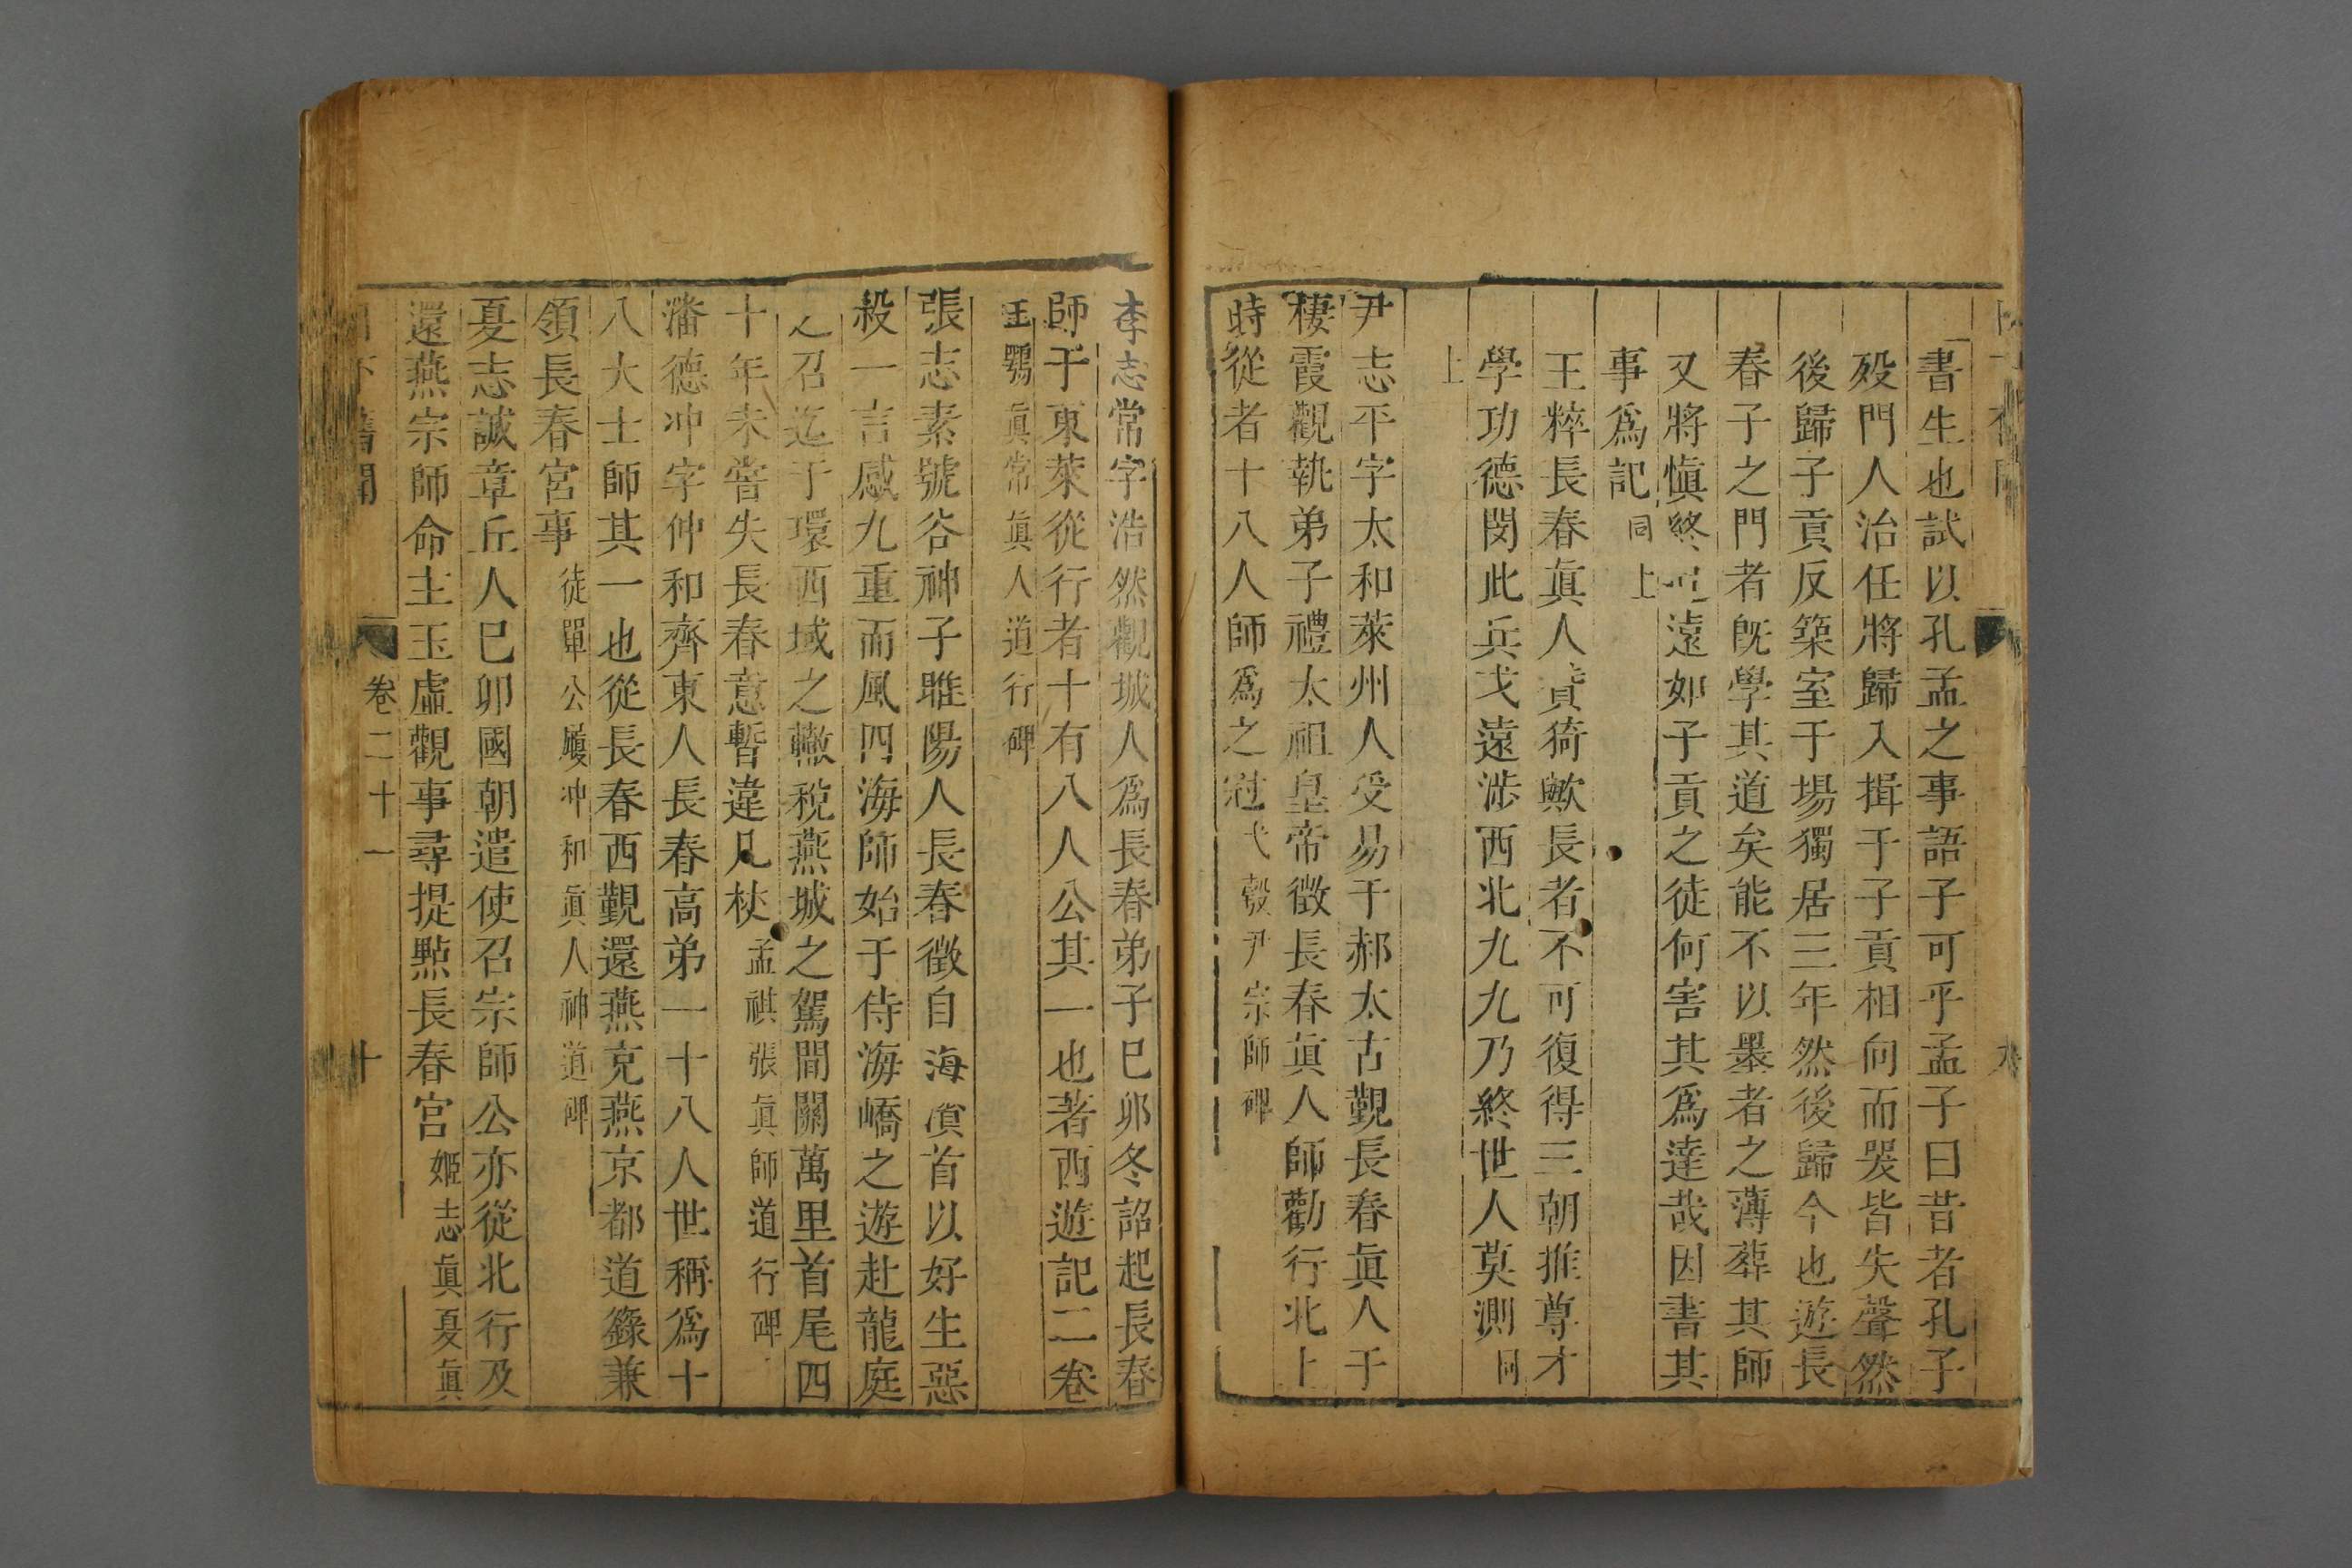 書生也試以孔孟之事語子可乎孟子曰昔者孔子
歿門人治任將歸入揖于子貢相向而哭皆失聲然
後歸子貢反築室于場獨居三年然後歸今也遊長
春子之門者旣學其道矣能不以墨者之薄葬其師
又將愼終追遠如子貢之徒何害其爲達哉因書其
事爲記同上
王粹長春眞人贊猗歟長者不可復得三朝推尊才
學功德閔此兵戈遠涉西北九九乃終世人莫測同
上
尹志平字太和萊州人受易于郝太古覲長春眞人于
棲霞觀執弟子禮太祖皇帝徵長春眞人師勸行北上
時從者十八人師爲之冠弋彀尹宗師碑
李志常字浩然觀城人爲長春弟子己卯冬詔起長春
師于東萊從行者十有八人公其一也著西遊記二卷
王鶚眞常眞人道行碑
張志素號谷神子睢陽人長春徵自海濵首以好生惡
殺一言感九重而風四海師始于侍海嶠之遊赴龍庭
之召迄于環西域之轍稅燕城之駕間關萬里首尾四
十年未嘗失長春意暫違几杖孟祺張眞師道行碑
潘德冲字仲和齊東人長春高弟一十八人世稱爲十
八大士師其一也從長春西覲還燕充燕京都道籙兼
領長春宮事徒單公履冲和眞人神道碑
夏志誠章丘人巳卯國朝遣使召宗師公亦從北行及
還燕宗師命主玉虛觀事尋提㸃長春宮姬志眞夏眞
日下舊聞 卷二十一 十